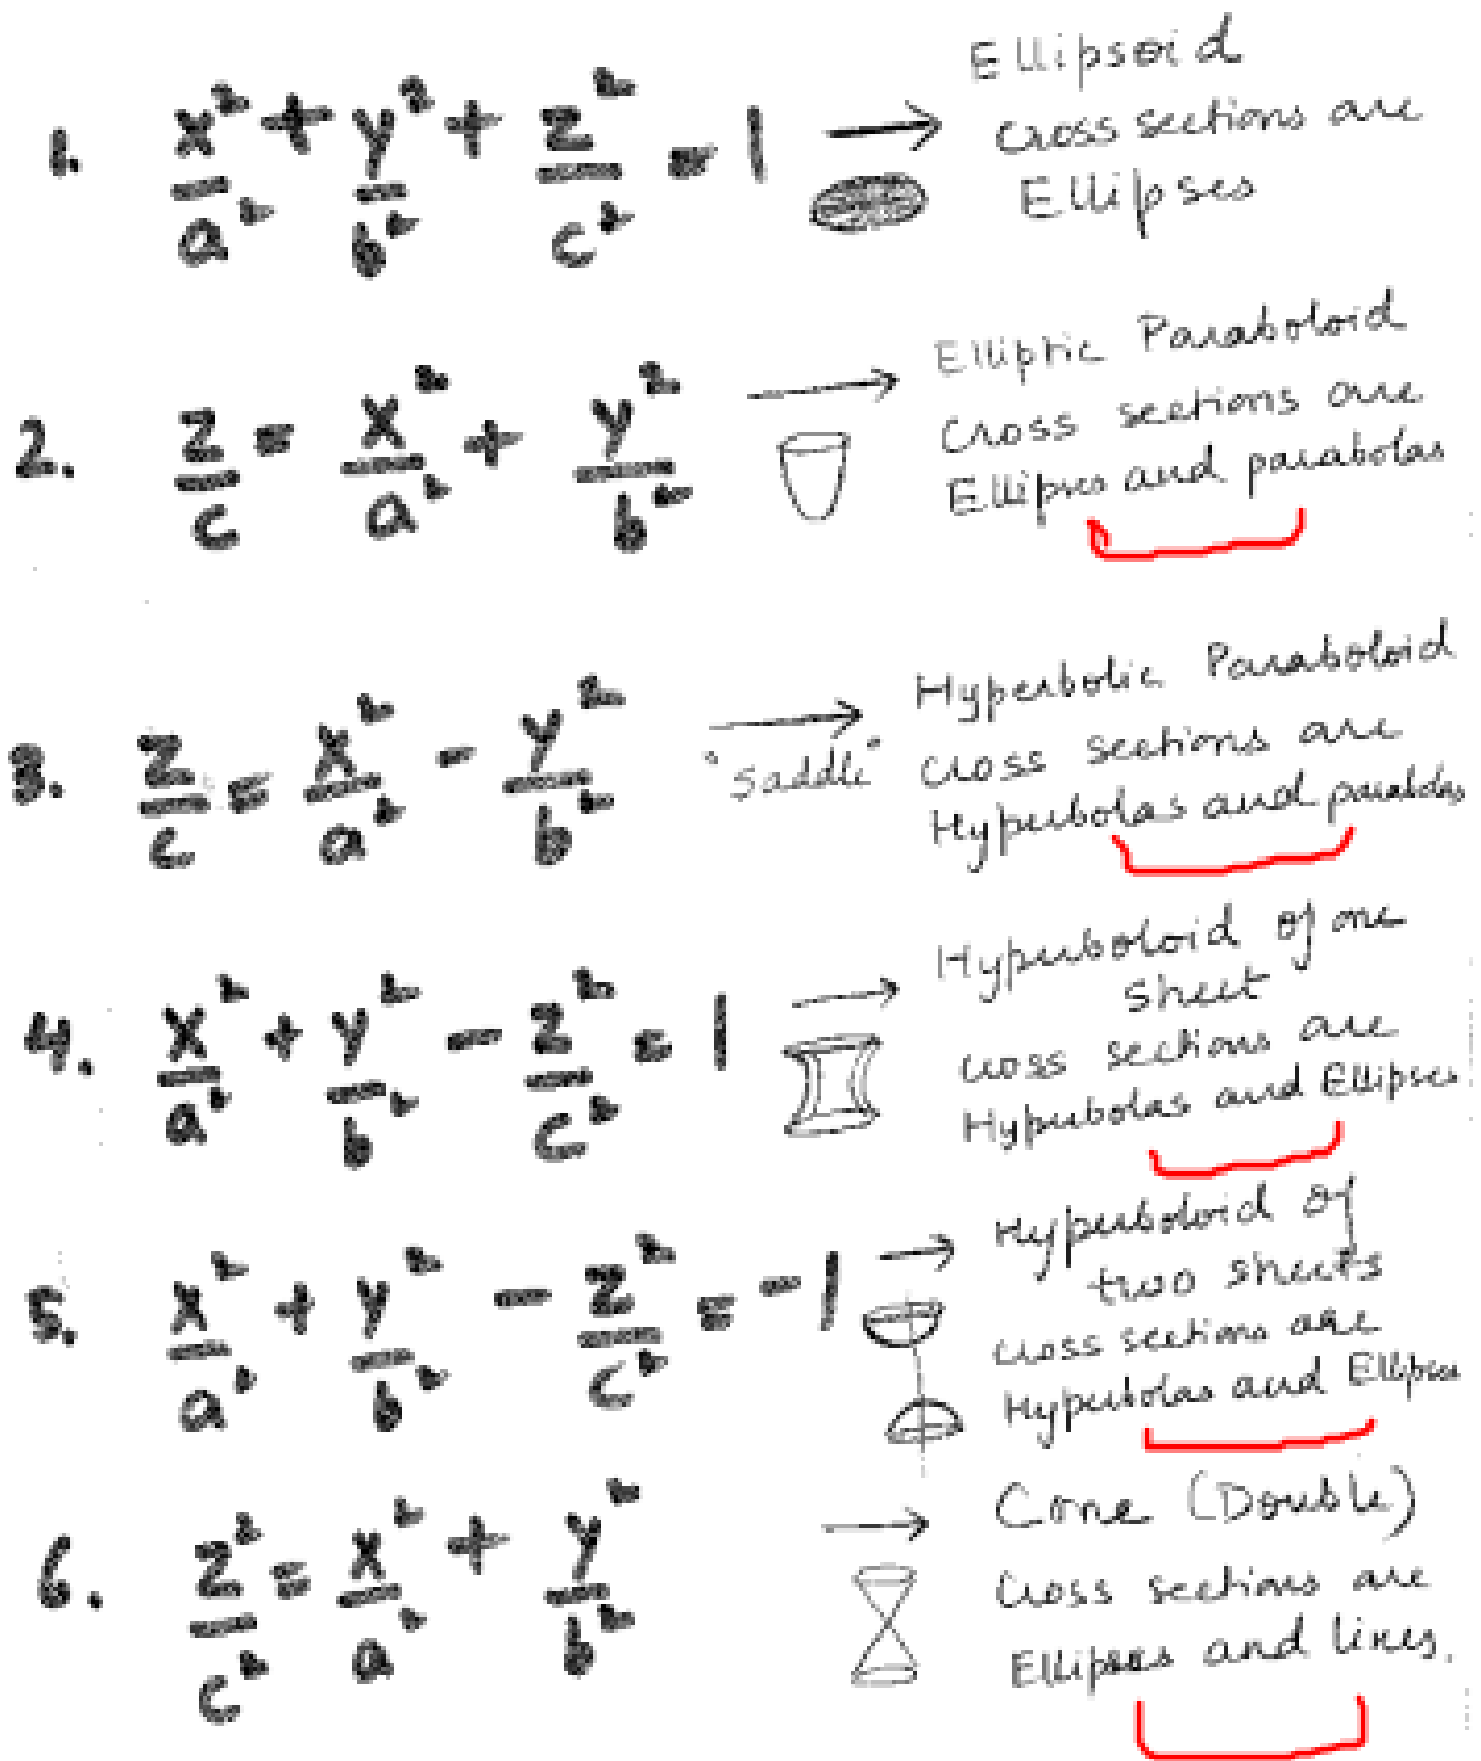 1. x²/a² + y²/b² + z²/c² = 1 → Ellipsoid
cross sections are
Ellipses
2. z/c = x²/a² + y²/b² → Elliptic Paraboloid
cross sections are
Ellipses and parabolas
3. z/c = x²/a² - y²/b² → Hyperbolic Paraboloid
"Saddle" cross sections are
Hyperbolas and parabolas
4. x²/a² + y²/b² - z²/c² = 1 → Hyperboloid of one
sheet
cross sections are
Hyperbolas and Ellipses
5. x²/a² + y²/b² - z²/c² = -1 → Hyperboloid of
two sheets
cross sections are
Hyperbolas and Ellipses
6. z²/c² = x²/a² + y²/b² → Cone (Double)
Cross sections are
Ellipses and lines.